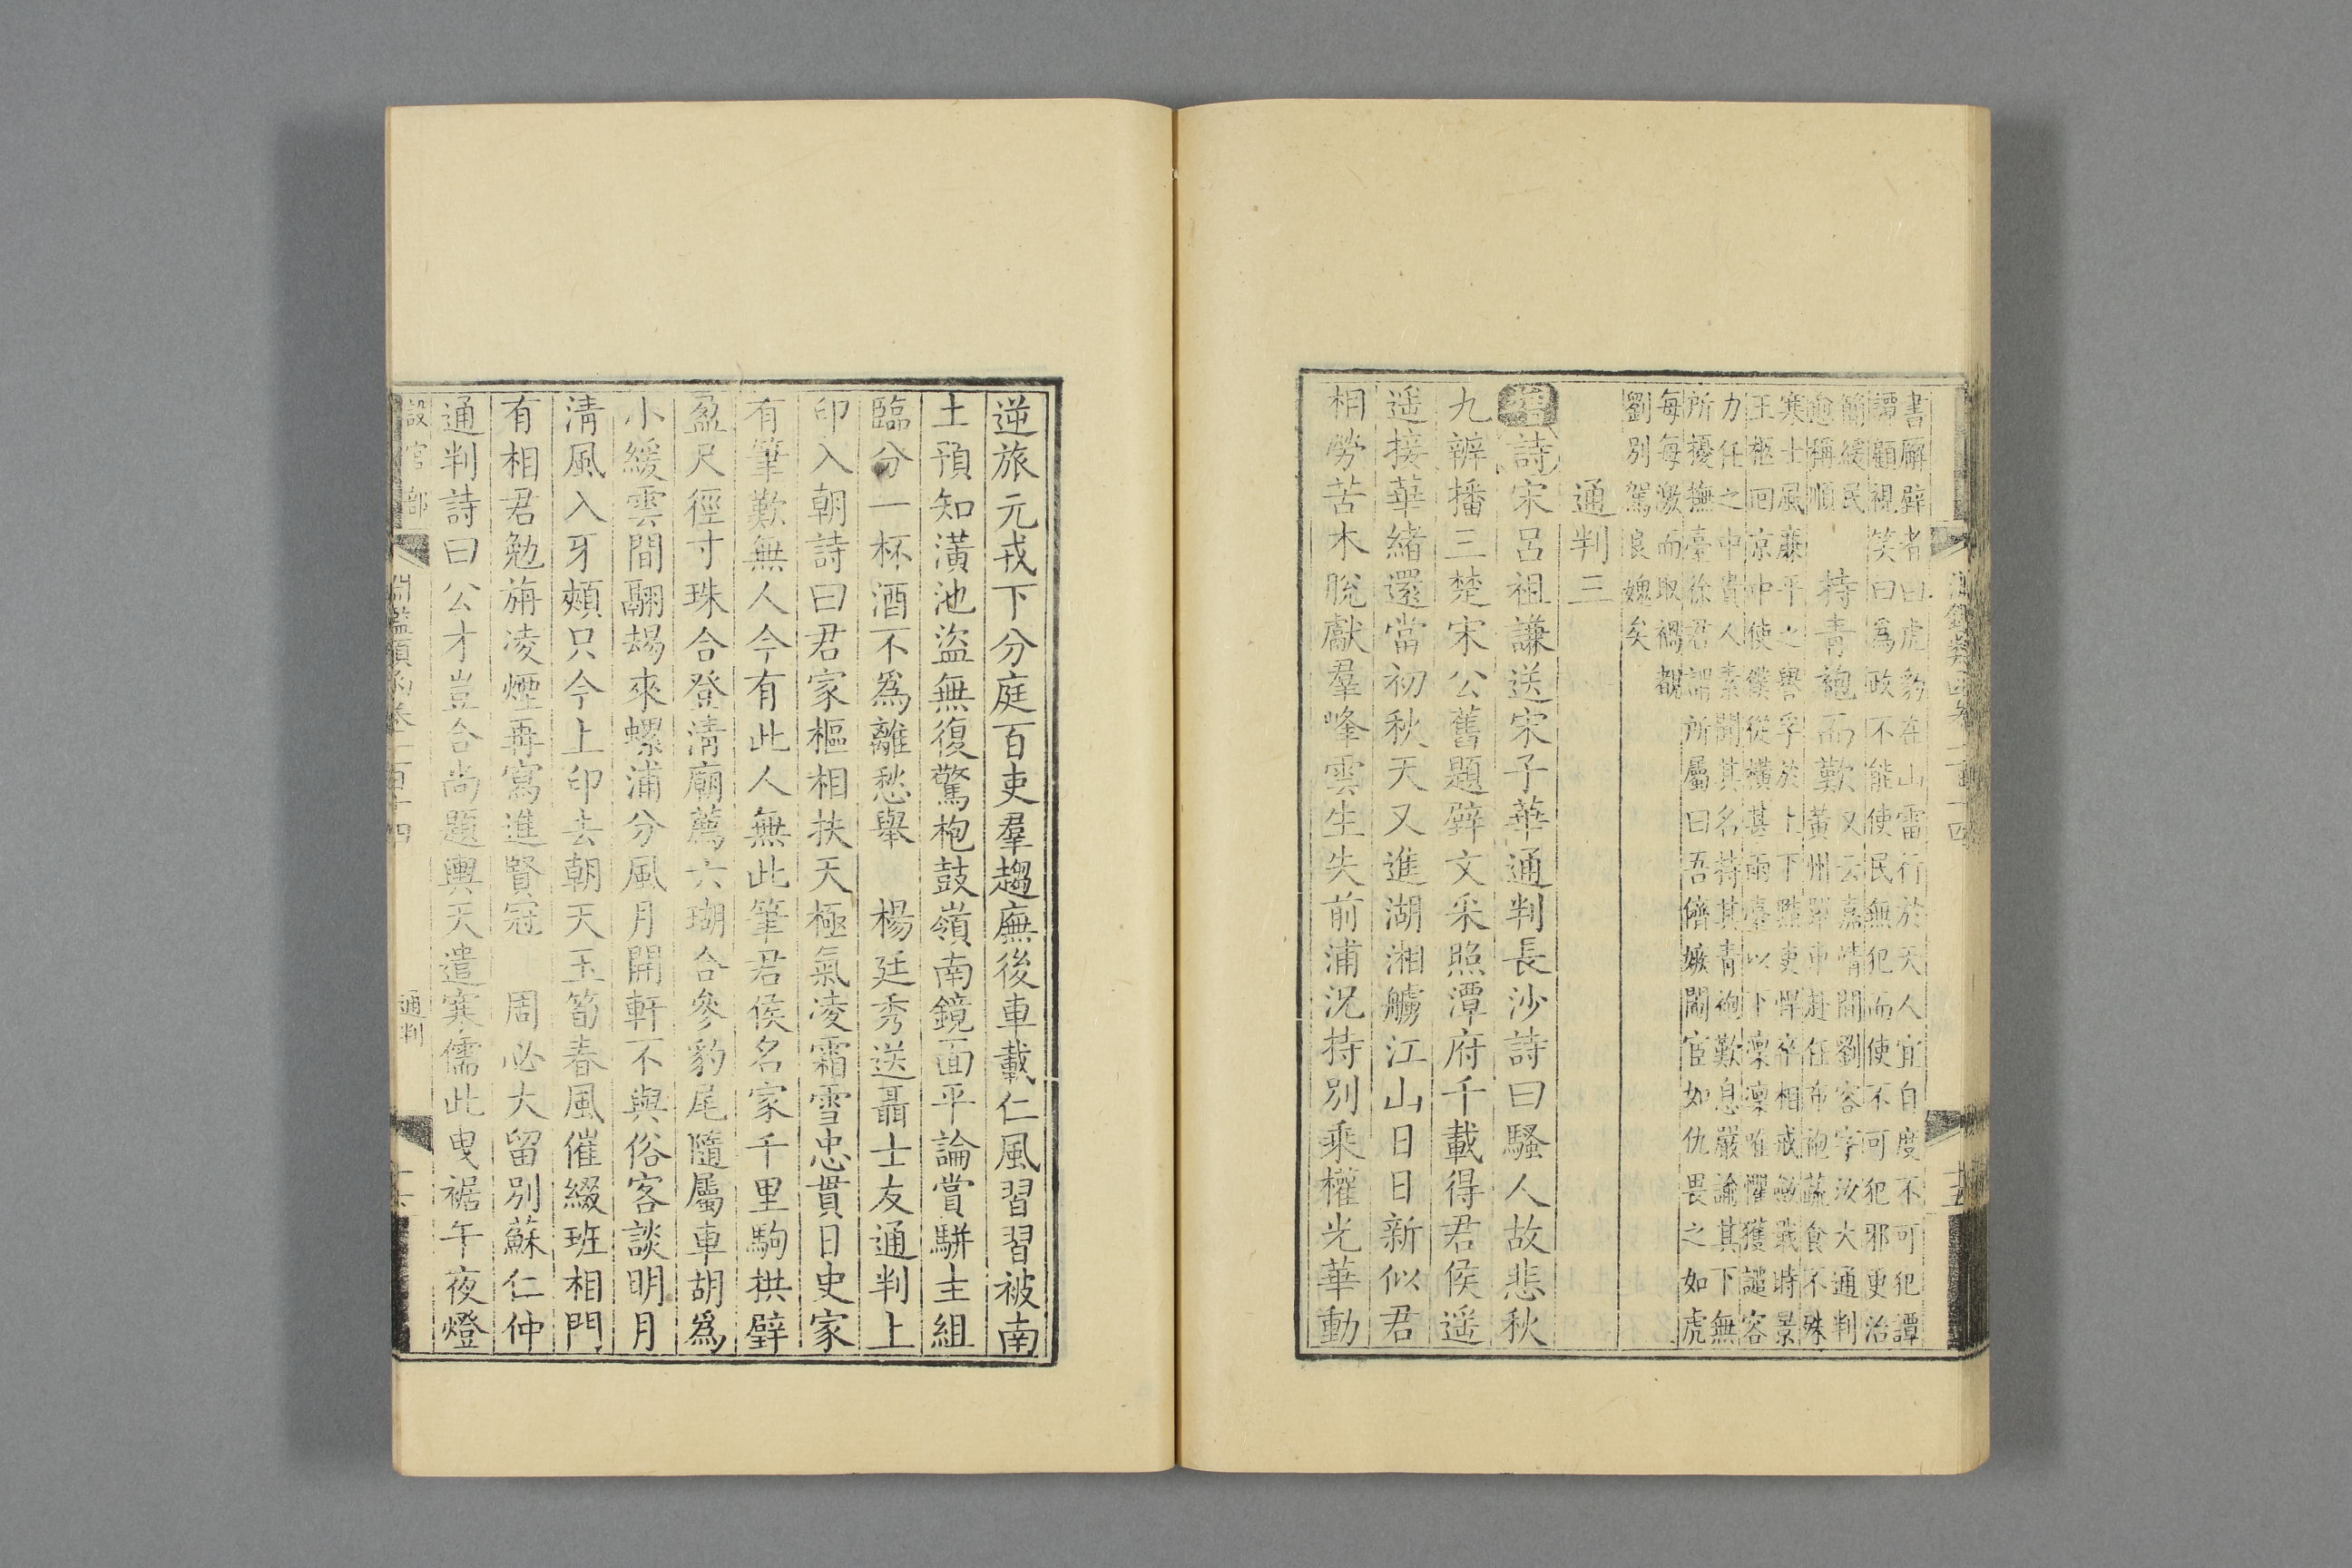 書屛壁者曰虎豹在山雷行於天人宜自度不可犯譚
譚顧視笑曰爲政不能使民無犯而使不可犯邪更治
簡緩民
愈稱順
持青袍而歎
又云袁情間劉容字汝大通判
黃州單車赴任布袍蔬食不殊
寒士風廉平之譽孚於上下黠吏悍卒相戒斂戢時景
王柩回京中使僕從橫甚兩臺以下凜凜唯懼獲譴容
力任之中貴人素聞其名持其青袍歎息嚴諭其下無
所擾撫臺徐君謂所屬曰吾儕嫉閹宦如仇畏之如虎
每每激而取禍覩
劉別駕良媿矣
通判三
增詩宋呂祖謙送宋子華通判長沙詩曰騷人故悲秋
九辨播三楚宋公舊題壁文采照潭府千載得君侯遥
遥接華緒還當初秋天又進湖湘艣江山日日新似君
相勞苦木脫獻羣峰雲生失前浦況持別乘權光華動
淵鑑類函卷一百十四
十五
逆旅元戎下分庭百吏羣趨廡後車載仁風習習被南
土預知潢池盜無復驚枹鼓嶺南鏡面平論賞駢圭組
臨分一杯酒不爲離愁舉 楊廷秀送聶士友通判上
印入朝詩曰君家樞相扶天極氣凌霜雪忠貫日史家
有筆歎無人今有此人無此筆君侯名家千里駒拱璧
盈尺徑寸珠合登淸廟薦六瑚合參豹尾隨屬車胡爲
小緩雲間翮朅來螺浦分風月開軒不與俗客談明月
淸風入牙頰只今上印去朝天玉筍春風催綴班相門
有相君勉旃凌煙再寫進賢冠 周必大留別蘇仁仲
通判詩曰公才豈合尚題輿天遣寒儒此曳裾午夜燈
設官部
淵鑑類函卷一百十四
通判
十六